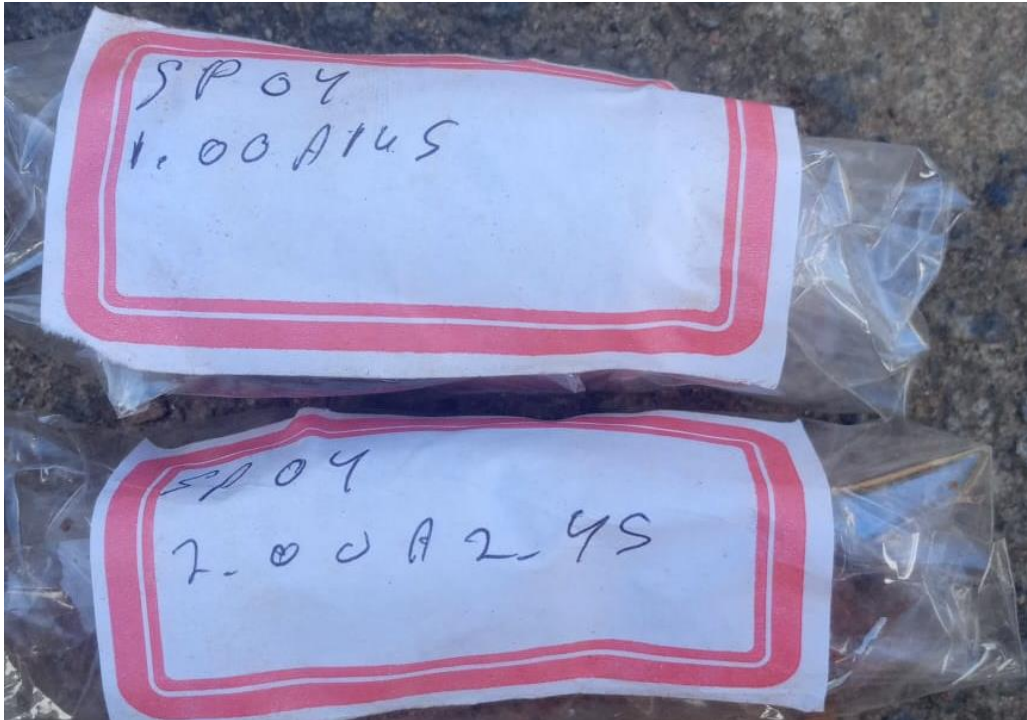 SP 04
1.00 A 1.45
SP 04
2.00 A 2.45